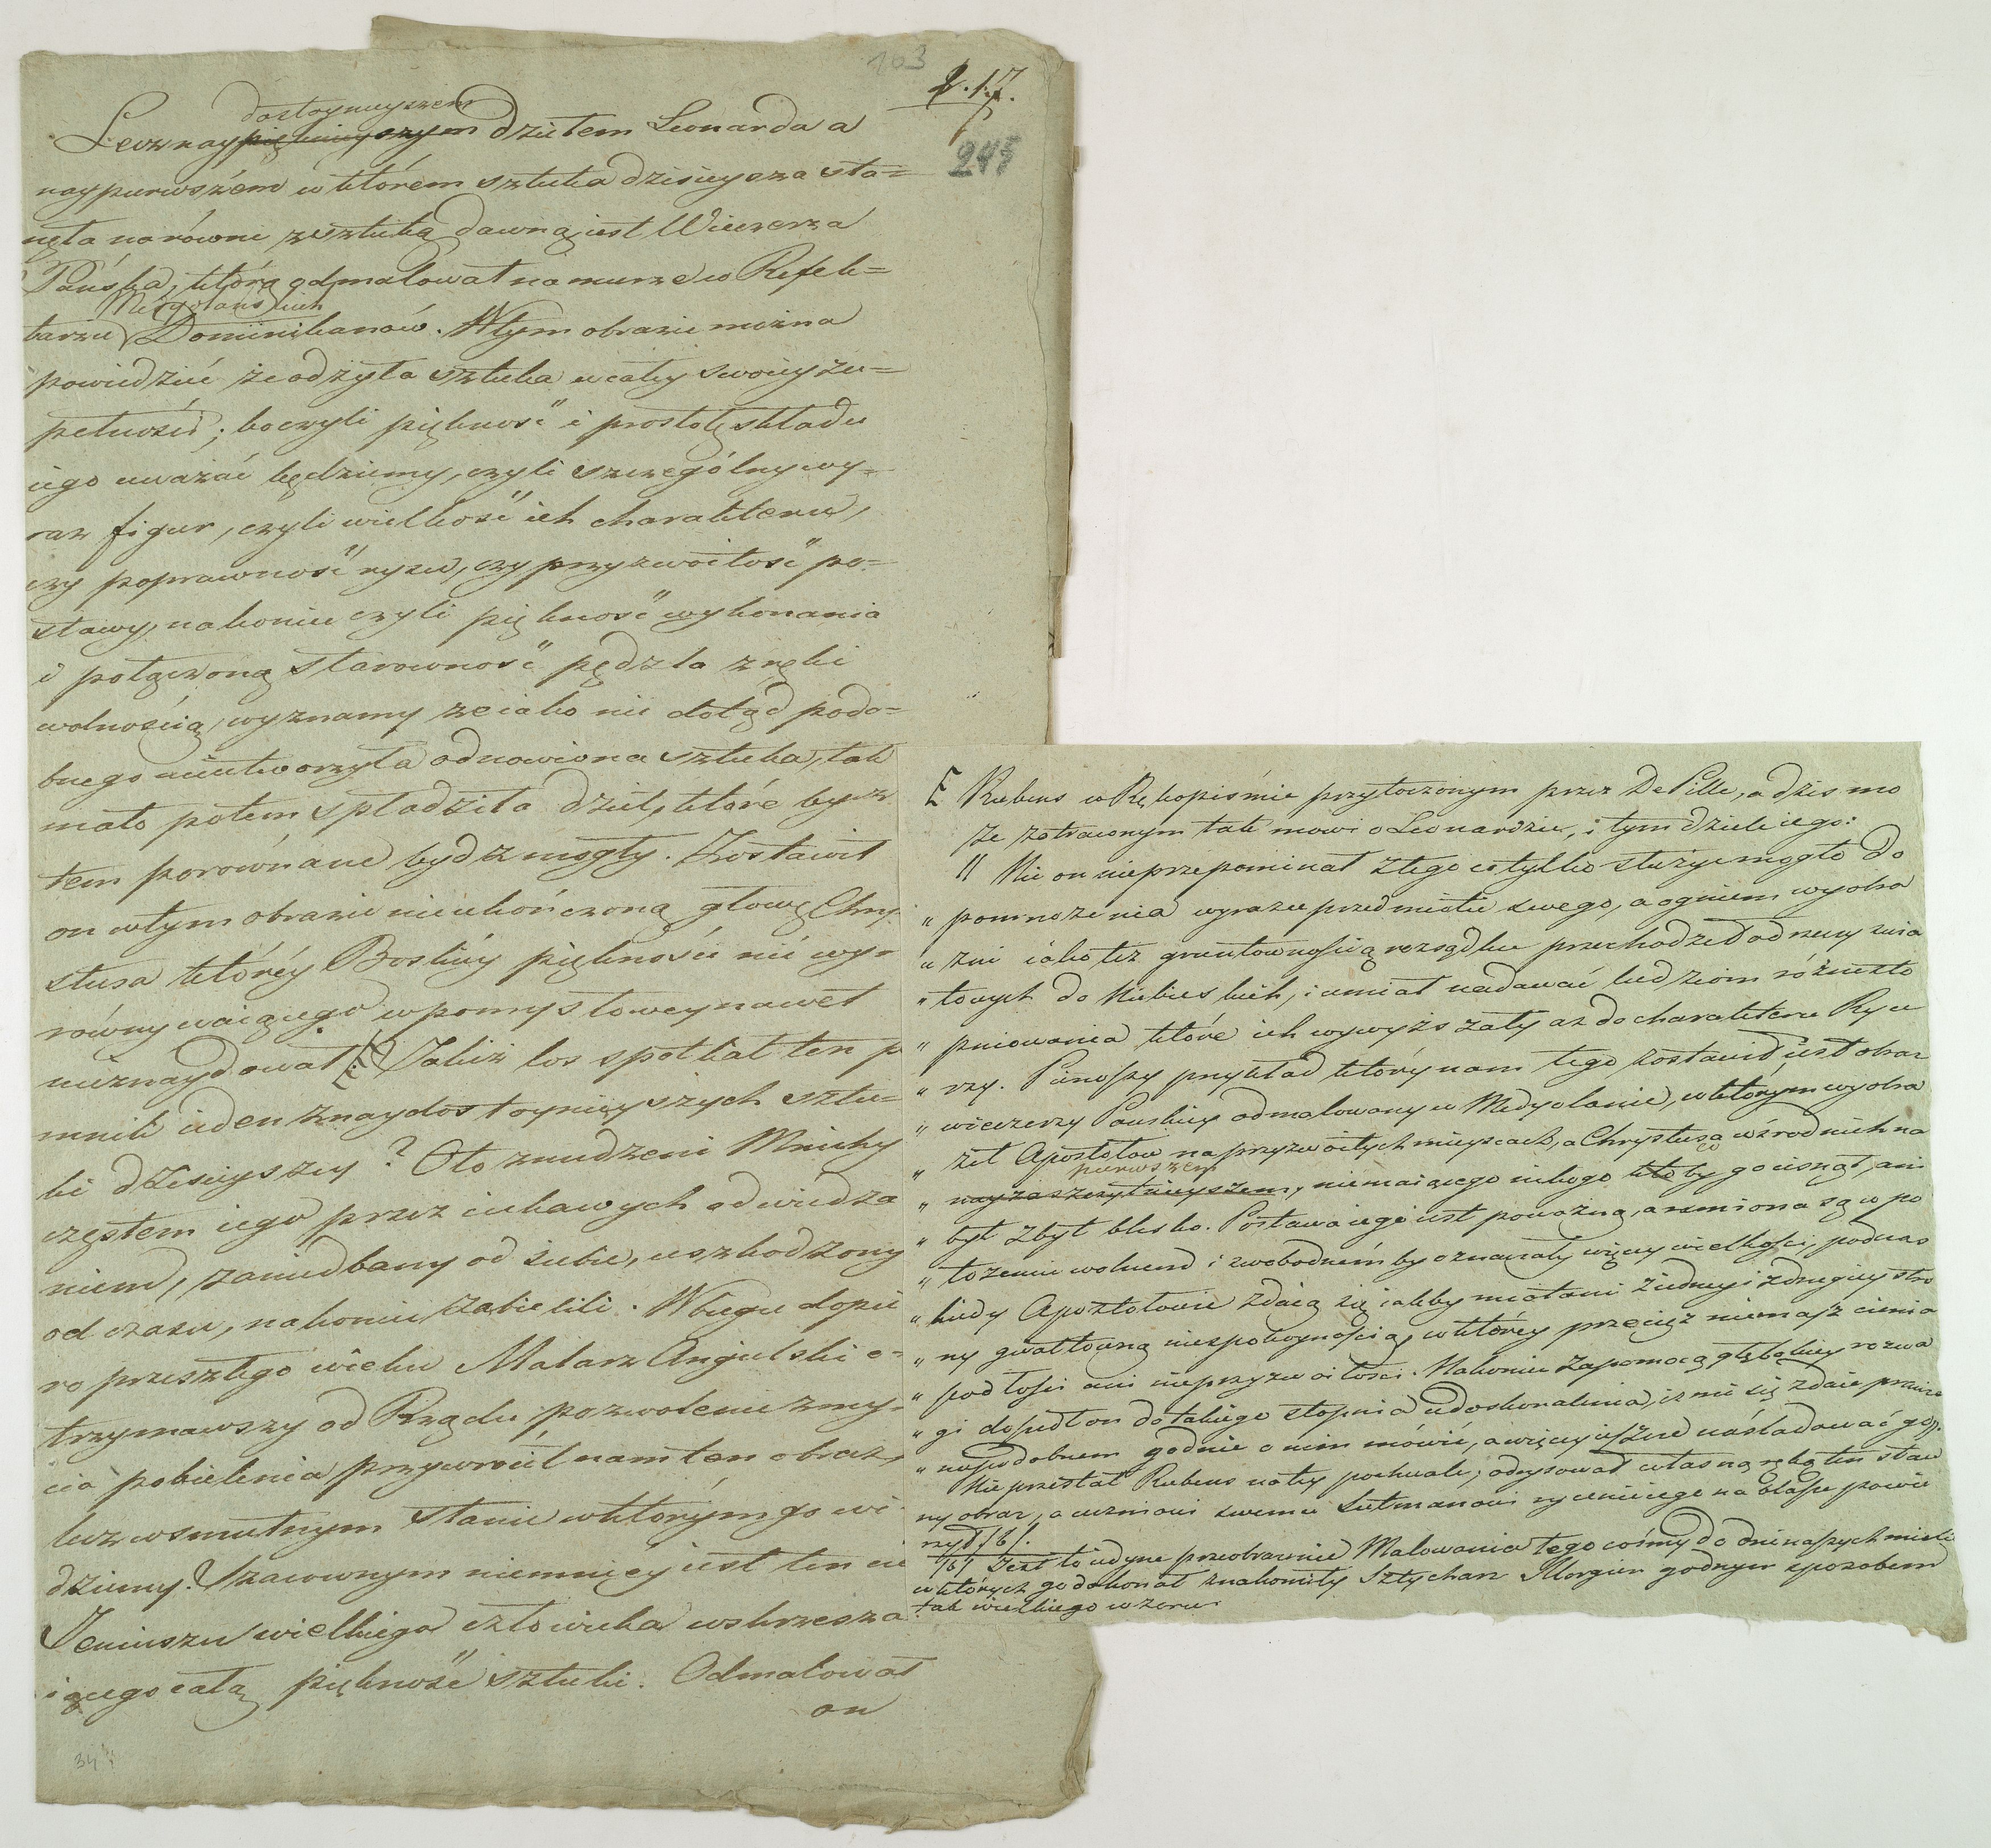 103
2. 17.
245
dostoynieyszem
Lecz naypięknieyszym dziełem Leonarda a
naypierwszém w którém sztuka dzisieysza sta=
nęła narówni ze sztuką dawną iest Wieczerza
Pańska, którą odmalował na murze w Refek=
Medyolańskich
tarzu Dominikanów. W tym obrazie można
powiedzieć że odżyła sztuka w całey swoiey zu=
pełności; bo czyli piękność i prostotę składu
iego uważać będziemy, czyli szczególny wy=
raz figur, czyli wielkość ich charakteru,
czy poprawność rysu, czy przyzwoitość po=
stawy, nakoniec czyli piękność wykonania
i połączoną starowność pędzla z ręki
wolnością, wyznamy że iako nic dotąd podo=
bnego nieutworzyła odnowiona sztuka, tak
mało potem spłodziła dzieł, które by z
tem porównane bydź mogły. Zostawił
on w tym obrazie nieukończoną głowę Chry=
stusa którey Boskiéy piękności nic wy=
równywaiącego w pomysłowey nawet
nieznaydował. Jakiż los spotkał ten p
mnik ieden z naydostoynieyszych sztu=
ki dzisieyszey? Oto znudzeni Mnichy
częstem iego przez ciekawych odwiedza
niem, zaniedbany od siebie, uszkodzony
od czasu, nakoniec zabielili. W biegu dopie
ro przeszłego wieku Malarz Angielski o=
trzymawszy od Rządu pozwolenie zmy=
cia pobielenia przywrócił nam ten obraz,
lecz w smutnym stanie w którym go wi=
dziemy. Szacownym niemniéy iest ten cie
Jeniuszu wielkiego człowieka wskrzesza
iącego całą piękność sztuki. Odmalował
on
E Rubens w Rękopiśmie przytoczonym przez De Pille, a dziś mo
że zatraconym tak mowi o Leonardzie, i tym dziele iego:
" Nic on nieprzepominał z tego co tylko służyć mogło do
" pomnożenia wyrazu przedmiotu swego, a ogniem wyobra
" źni iako też gruntownością rozsądku przechodził od rzeczy świa
" towych do Niebieskich, i umiał nadawać ludziom różne sto
" pniowania które ich wywyższały aż do charakteru Ryce
" rzy. Pierwszy przykład który nam tego zostawił iest obraz
" wieczerzy Pańskiey odmalowany w Medyolanie, w którym wyobra
" ził Apostołow na przyzwoitych mieyscach, a Chrystusa wśrod nich na
pierwszem
co
" nayzaszczytnieyszem, niemaiącego nikogo kto by go cisnął, ani
" był zbyt blisko. Postawa iego iest poważna, a ramiona są w po
" łożeniu wolném i swobodném by oznaczały więcey wielkości, podczas
" kiedy Apostołowie zdaią się iakby miotani z iedney i z drugiey stro
" ny gwałtowną niespokoynością, w którey przecięż niemasz cienia
" podłości ani nieprzyzwoitości. Nakoniec za pomocą głębokiey rozwa
" gi doszedł on do takiego stopnia udoskonalenia, iż mi się zdaie prawie
" niepodobnem godnie o nim mówić, a więcey ieszcze naśladować go".
Nie przestał Rubens na tey pochwale; odrysował własną ręką ten sław
ny obraz, a uczniowi swemu Sutmanowi rycenie iego na blasze powie
rzył /b/.
/b/ Jest to iedyne przeobrażenie Malowania tego cośmy do dni naszych mieli
w których go dokonał znakomity Sztycharz Morgien godnym sposobem
tak wielkiego wzoru.